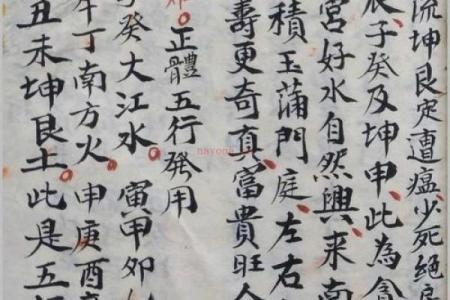 流坤艮定遭瘟少死絕
辰子癸及坤申此為貪
宮好水自然興來南
積玉蒲門庭左右
壽更奇真富貴旺人
正體五行發用
子癸大江水寅甲卯
午丁南方火申庚酉
丑未坤艮土此是五
nayona